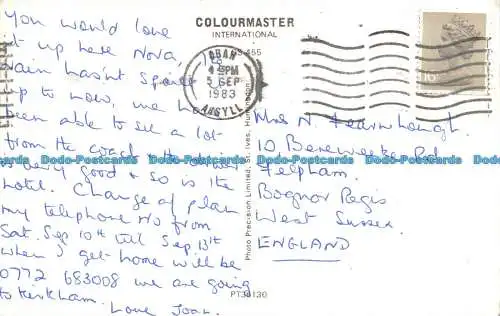 COLOURMASTER
INTERNATIONAL
OBAN
4 PM
5 SEP
1983
ARGYLL
16P
You would love
it up here Nova, The
rain hasn't spoilt
up to now, we have
been able to see a lot
from the coach & the driver
is very good & so is the
hotel. Change of plan
my telephone No from
Sat. Sep 10th till Sep 13th
when I get home will be
0772 683008 we are going
to Kirkham.
Love Joan.
Photo Precision Limited, St. Ives, Huntingdon
PT36130
Mrs N.
10
Felpham.
Bognor Regis
West Sussex.
ENGLAND
Dodo-Postcards Dodo-Postcards Dodo-Postcards Dodo-Postcards Dodo-Postcards